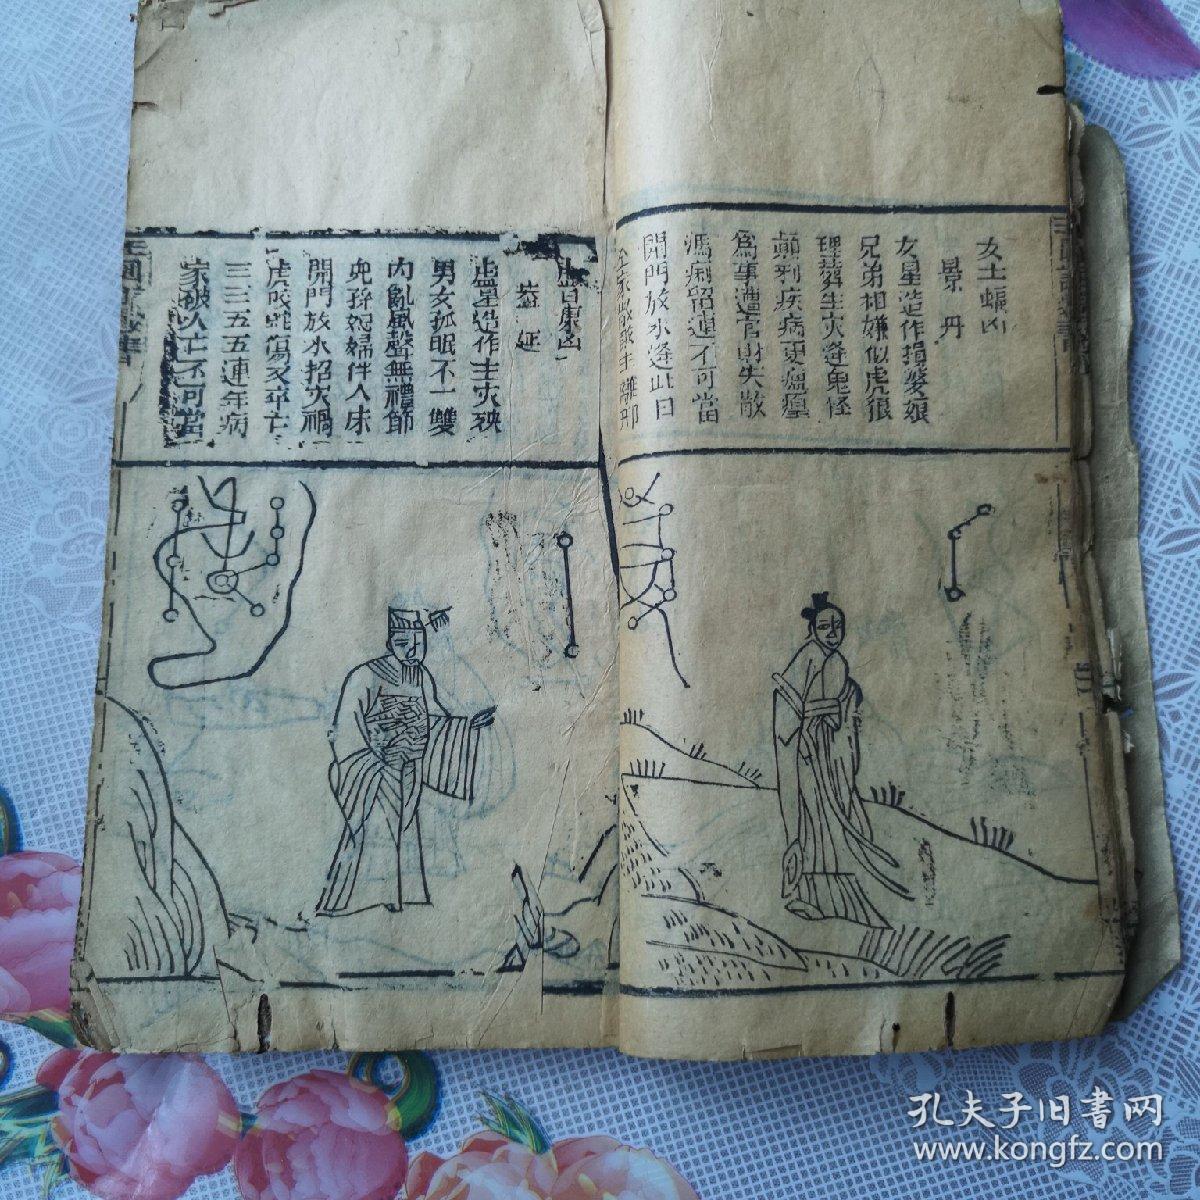 女土蝠凶
景丹
女星造作損婆娘
兄弟相嫌似虎狼
埋葬生災逢鬼怪
顛邪疾病更瘟瘟
為事遭官財失散
瀉痢留連不可當
開門放水逢此日
全家散敗主離鄉
虛日鼠凶
蓋延
虛星造作主災殃
男女孤眠不一雙
內亂風聲無禮節
兒孫媳婦伴人床
開門放水招災禍
虎咬蛇傷又卒亡
三三五五連年病
家破人亡不可當
孔夫子旧書网
www.kongfz.com